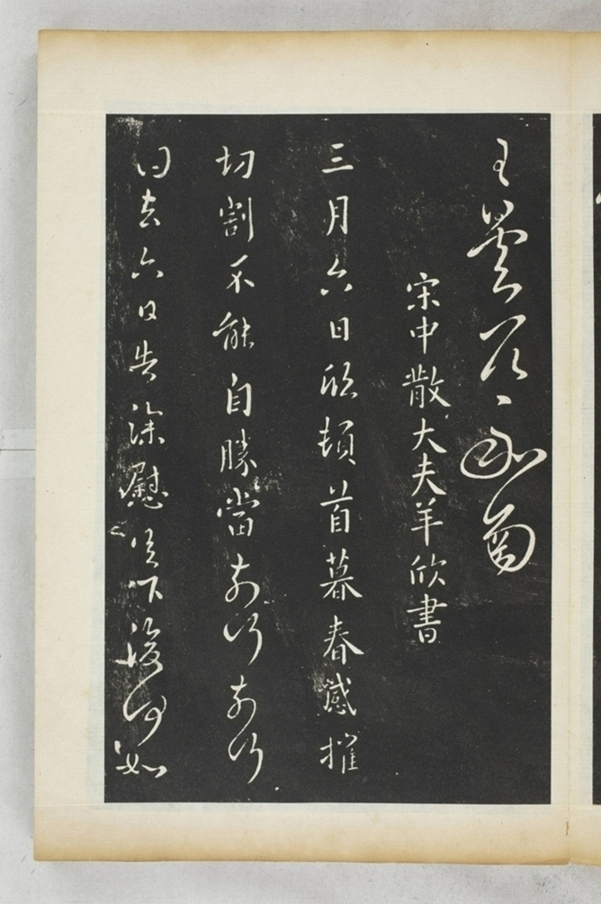 王曇
宋中散大夫羊欣書
三月六日欣頓首暮春感摧
切割不能自勝當奈何奈何
去六日告深慰足下復何如